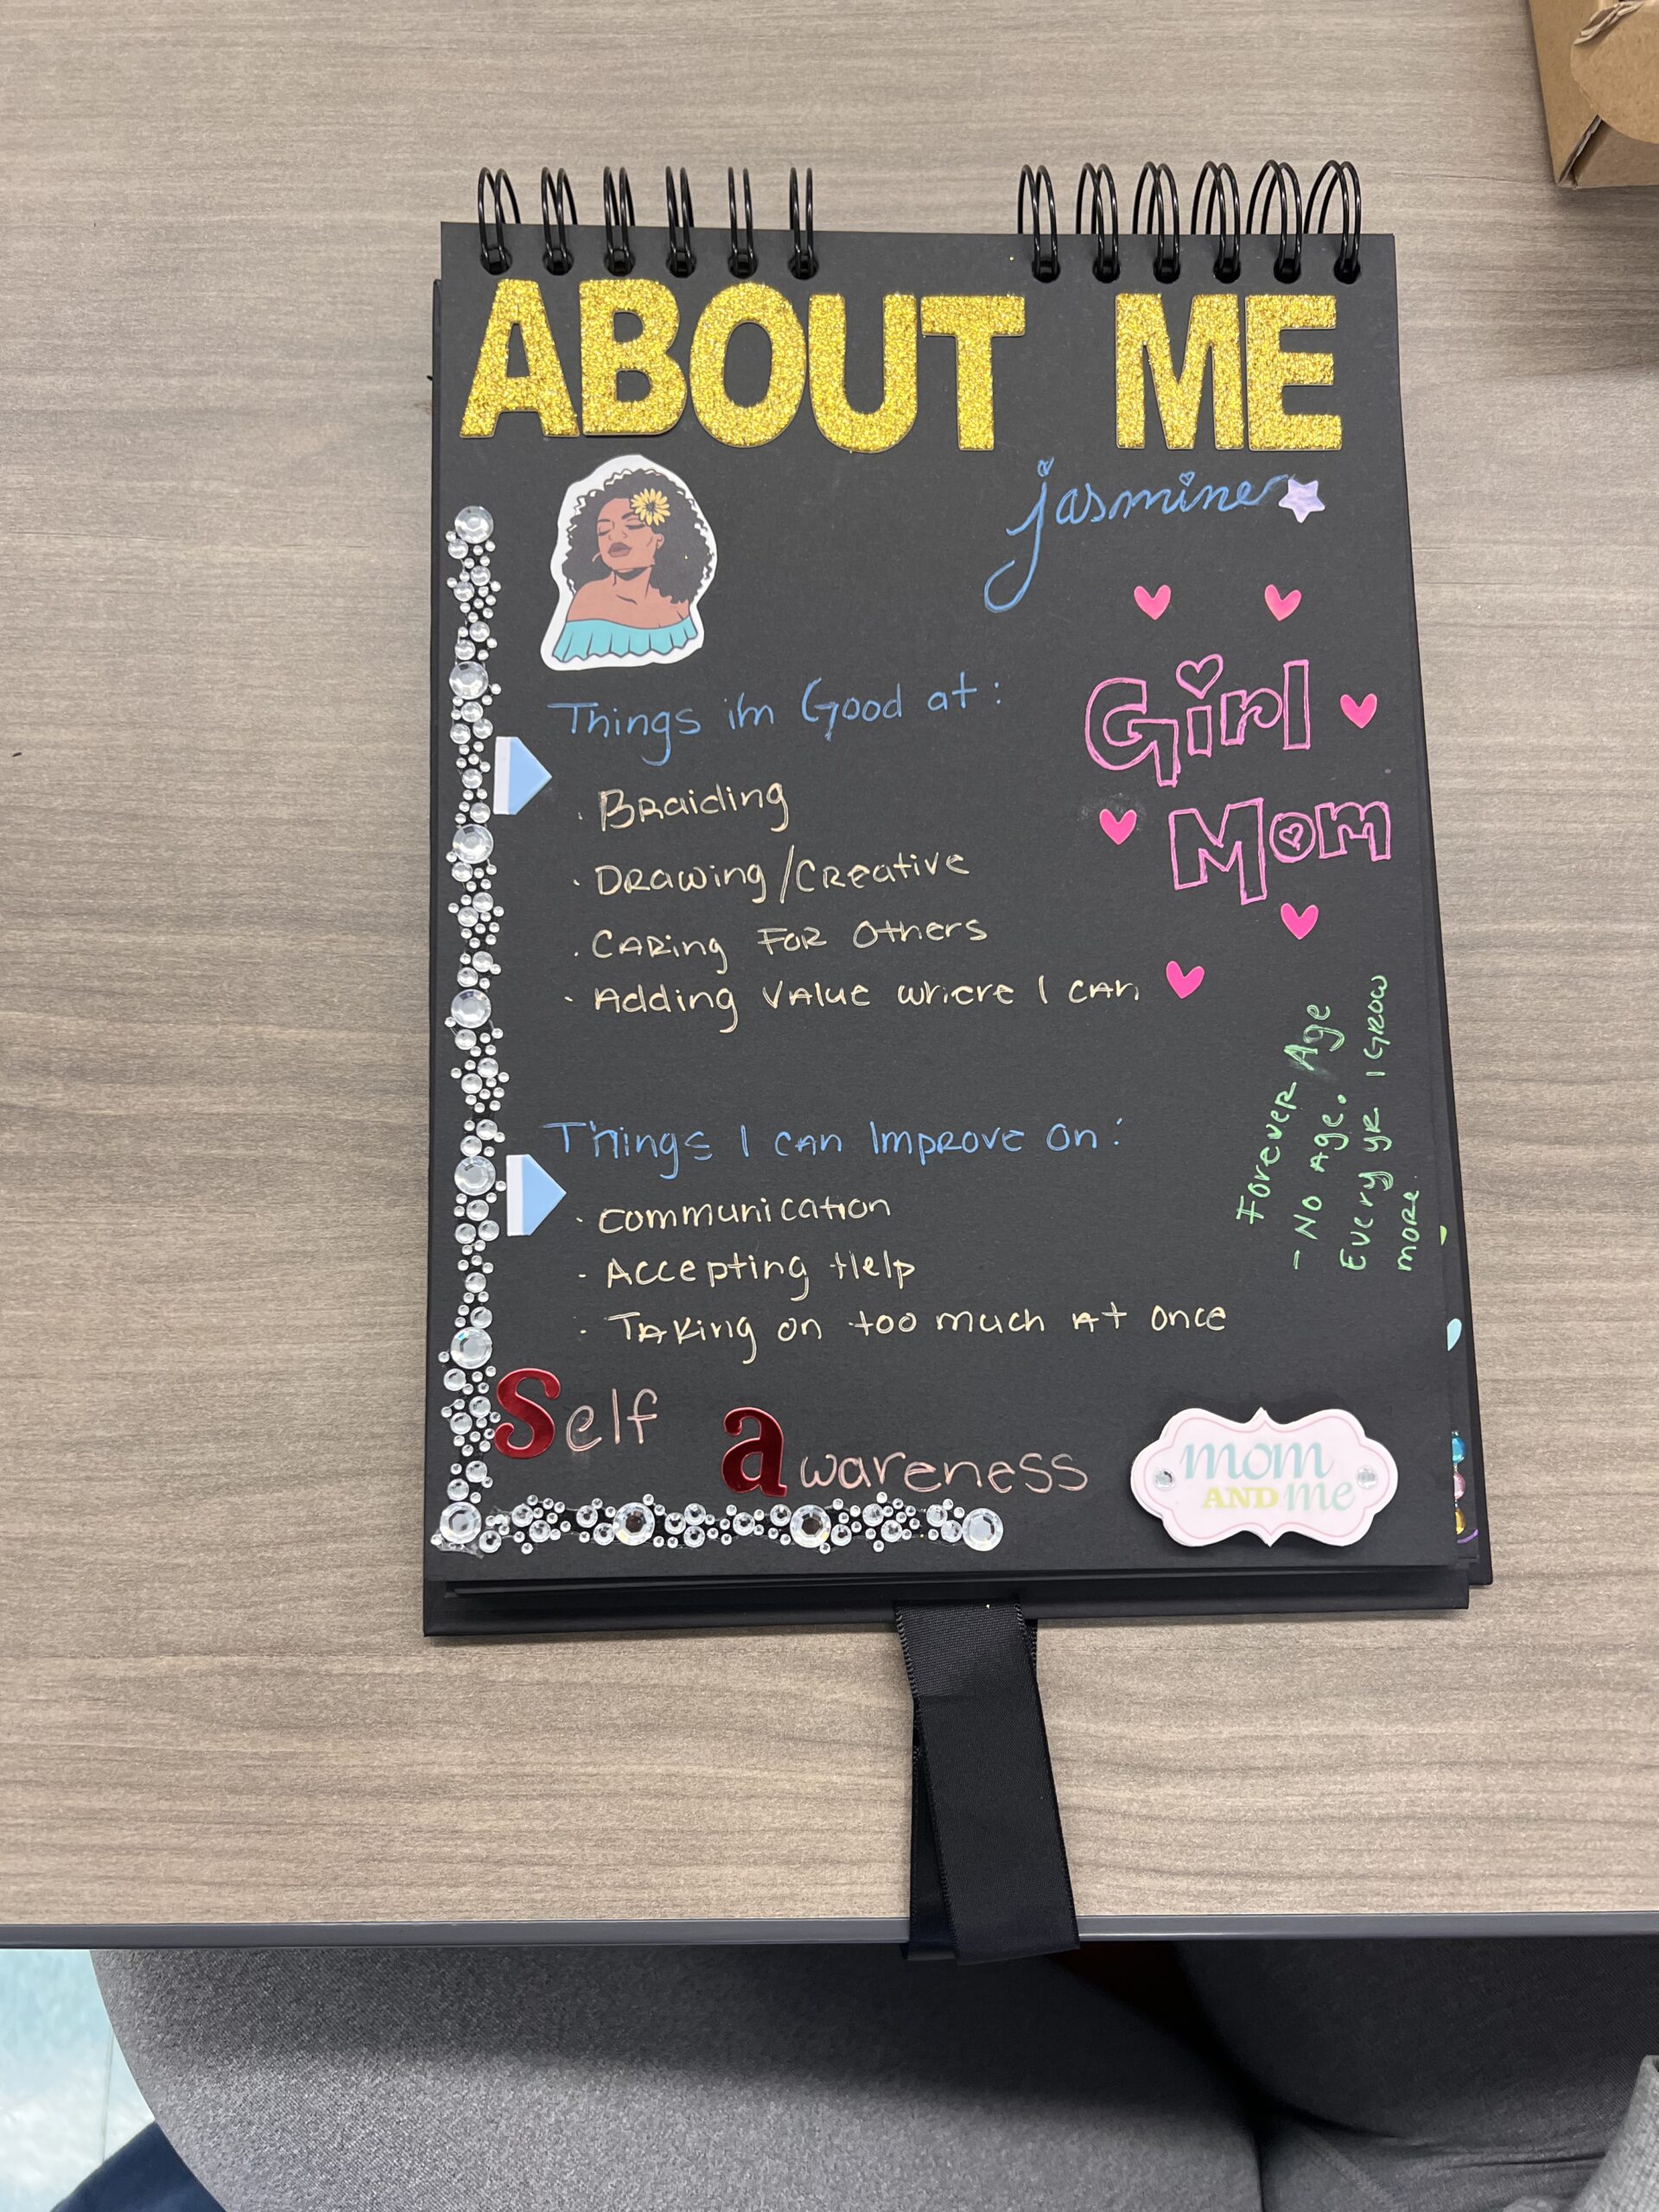 ABOUT ME
jasmine
Girl
Mom
Things im Good at:
· Braiding
· Drawing/Creative
· Caring For Others
· Adding Value where I can
Forever Age
- No Age.
Every yr I Grow
more.
Things I can Improve on:
· Communication
· Accepting Help
· Taking on too much at once
Self Awareness
mom
AND me